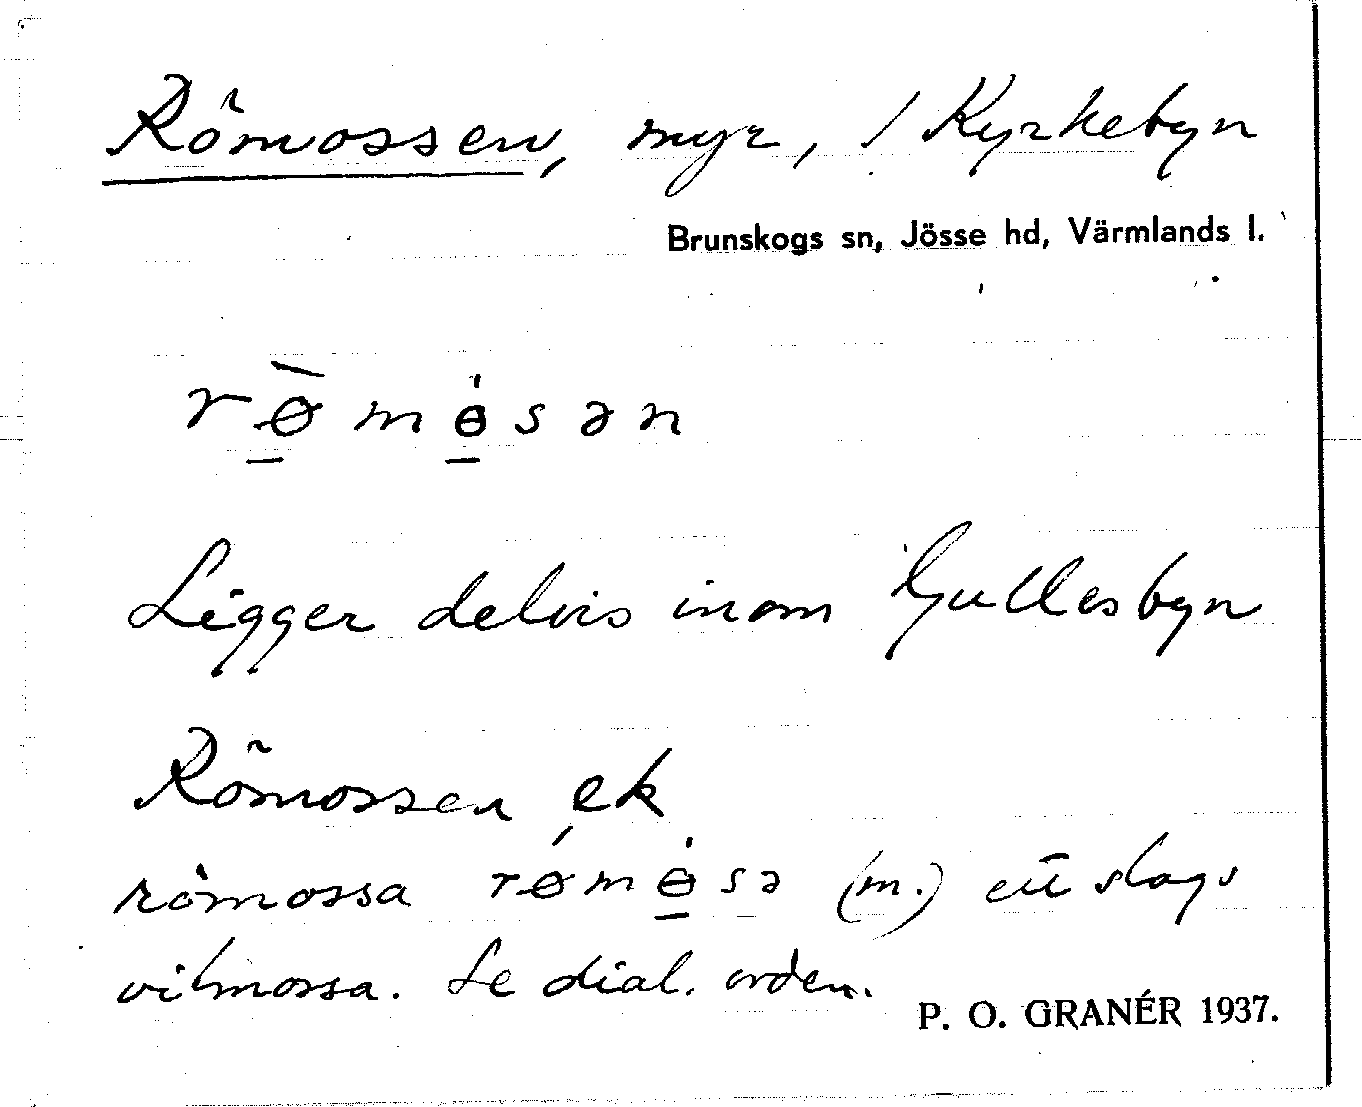 Römossen, myr, / Kyrkebyn
Brunskogs sn, Jösse hd, Värmlands l.
rø̀mɵ̇sən
Ligger delvis inom Gullesbyn
Römossen ek
römossa rømɵ̇sə (m.) ett slags
vitmossa. Se dial. orden.
P. O. GRANÉR 1937.